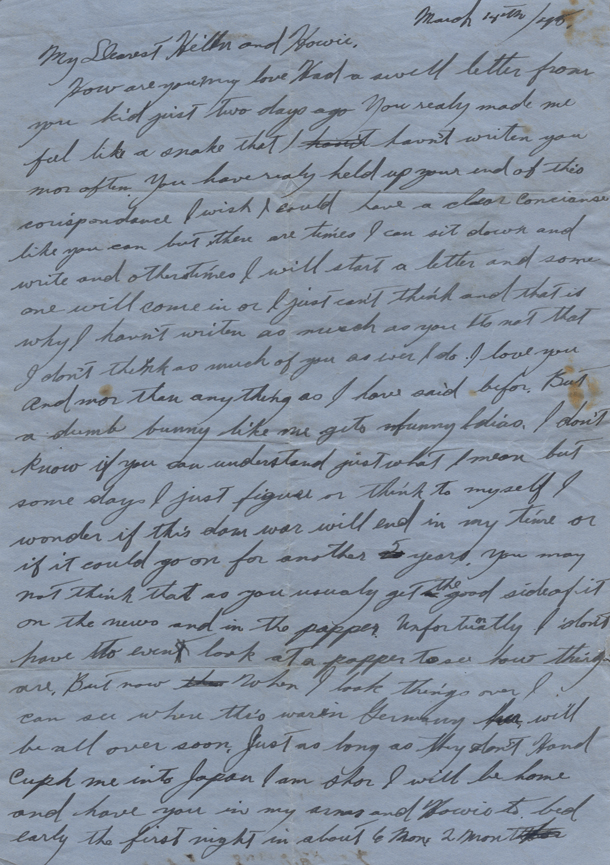 March 14th/45
My Dearest Hellen and Howie,
How are you my love Had a swell letter from
you kid just two days ago You realy made me
feel like a snake that I havn't writen you
mor often. You have realy held up your end of this
corispondance I wish I could have a clear conciance
like you can but there are times I can sit down and
write and other times I will start a letter and some
one will come in or I just can't think and that is
why I havn't writen as much as you Its not that
I don't think as much of you as ever I do. I love you
and mor than anything as I have said befor. But
a dumb bunny like me gets funny Idias. I don't
know if you can understand just what I mean but
some days I just figure or think to myself I
wonder if this dam war will end in my time or
if it could go on for another 5 years. You may
not think that as you usualy get the good side of it
on the news and in the papper. Unfortinatly I don't
have to even look at a papper to see how things
are. But now When I look things over I
can see where this war in Germany will
be all over soon. Just as long as they don't Hand
Cuph me into Japan I am shor I will be home
and have you in my arms and Howie to bed
early the first night in about 6 Mon 2 Mont